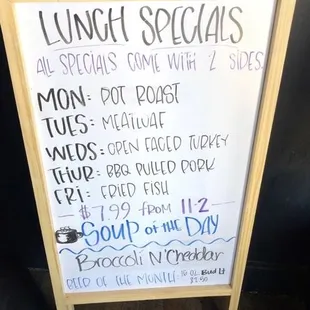 LUNCH SPECIALS
ALL SPECIALS COME WITH 2 SIDES
MON: POT ROAST
TUES: MEATLOAF
WEDS: OPEN FACED TURKEY
THUR: BBQ PULLED PORK
FRI: FRIED FISH
- $7.99 FROM 11-2 -
SOUP OF THE DAY
Broccoli N' Cheddar
BEER OF THE MONTH: